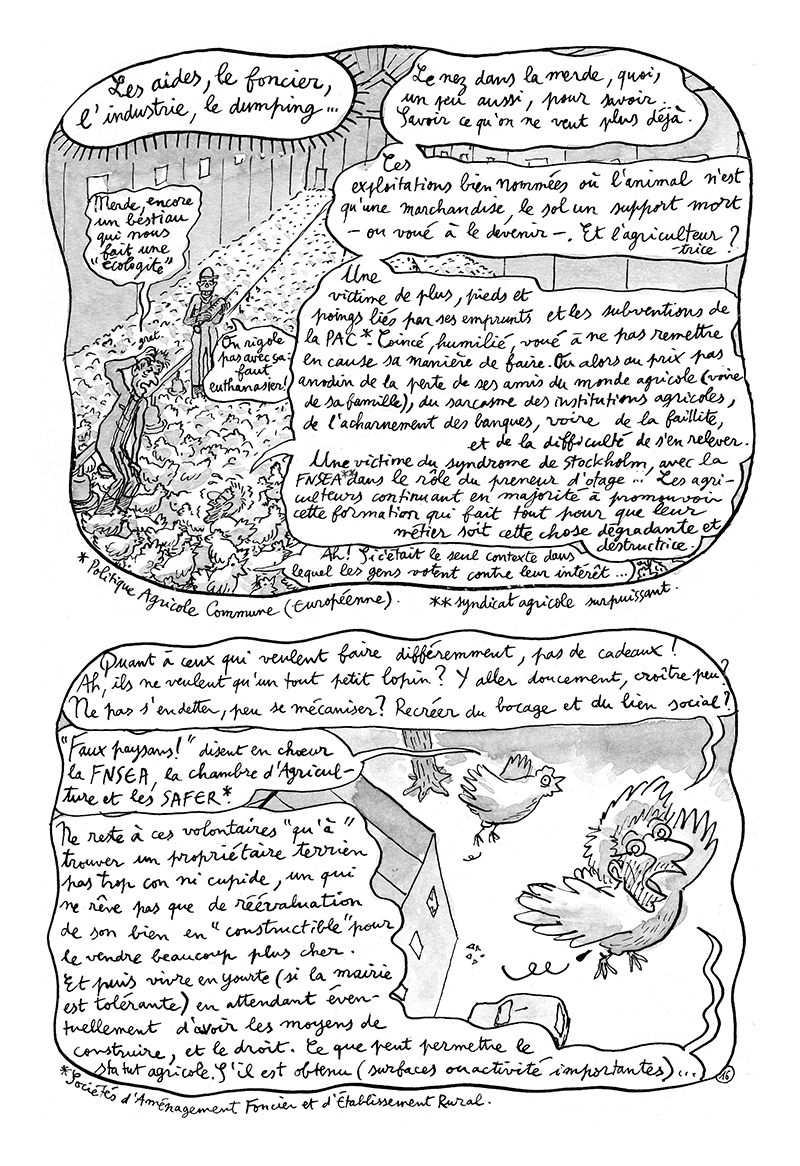 Les aides, le foncier,
l'industrie, le dumping...
Le nez dans la merde, quoi,
un peu aussi, pour savoir...
Savoir ce qu'on ne veut plus déjà.
Ces
exploitations bien nommées où l'animal n'est
qu'une marchandise, le sol un support mort
— ou voué à le devenir —. Et l'agriculteur ?
-trice
Merde, encore
un bestiau
qui nous
fait une
"écologite"
grat
On rigole
pas avec ça:
faut
euthanasier!
Une
victime de plus, pieds et
poings liés par ses emprunts et les subventions de
la PAC*. Coincé, humilié, voué à ne pas remettre
en cause sa manière de faire. Ou alors au prix pas
anodin de la perte de ses amis du monde agricole (voire
de sa famille), du sarcasme des institutions agricoles,
de l'acharnement des banques, voire de la faillite,
et de la difficulté de s'en relever.
Une victime du syndrome de Stockholm, avec la
FNSEA** dans le rôle du preneur d'otage... Les agri-
culteurs continuant en majorité à promouvoir
cette formation qui fait tout pour que leur
métier soit cette chose dégradante et
destructrice.
Ah! Si c'était le seul contexte dans
lequel les gens votent contre leur intérêt...
* Politique Agricole Commune (Européenne).
** syndicat agricole surpuissant.
Quant à ceux qui veulent faire différemment, pas de cadeaux !
Ah, ils ne veulent qu'un tout petit lopin ? Y aller doucement, croître peu ?
Ne pas s'endetter, peu se mécaniser ? Recréer du bocage et du bien social ?
"Faux paysans!" disent en chœur
la FNSEA, la chambre d'Agricul-
ture et les SAFER*.
Ne reste à ces volontaires "qu'à"
trouver un propriétaire terrien
pas trop con ni cupide, un qui
ne rêve pas que de réévaluation
de son bien en "constructible" pour
le vendre beaucoup plus cher.
Et puis vivre en yourte (si la mairie
est tolérante) en attendant éven-
tuellement d'avoir les moyens de
construire, et le droit. Ce que peut permettre le
statut agricole. S'il est obtenu (surfaces ou activité importantes)...
16
*Sociétés d'Aménagement Foncier et d'Établissement Rural.